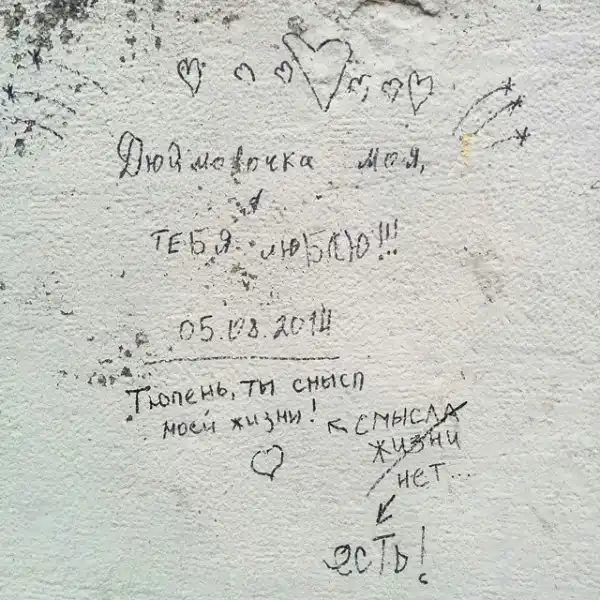 Дюймовочка моя,
ТЕБЯ ЛЮБЛЮ!!!
05.08.2014
Тюлень, ты смысл
моей жизни!
← СМЫСЛА
ЖИЗНИ
НЕТ...
есть!